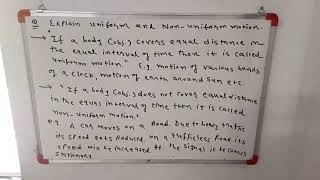 Q Explain uniform and Non-uniform motion.
→ "If a body (obj.) covers equal distance in
the equal interval of time then it is called
uniform motion." E.g. motion of various hands
of a clock, motion of earth around sun etc.
→ "If a body (obj.) does not cover equal distance
in the equal interval of time then it is called
non-uniform motion"
e.g. A car moves on a Road. Due to heavy traffic
its speed gets Reduced, on a trafficless Road its
speed will be increased. At the signal it becomes
stationary.